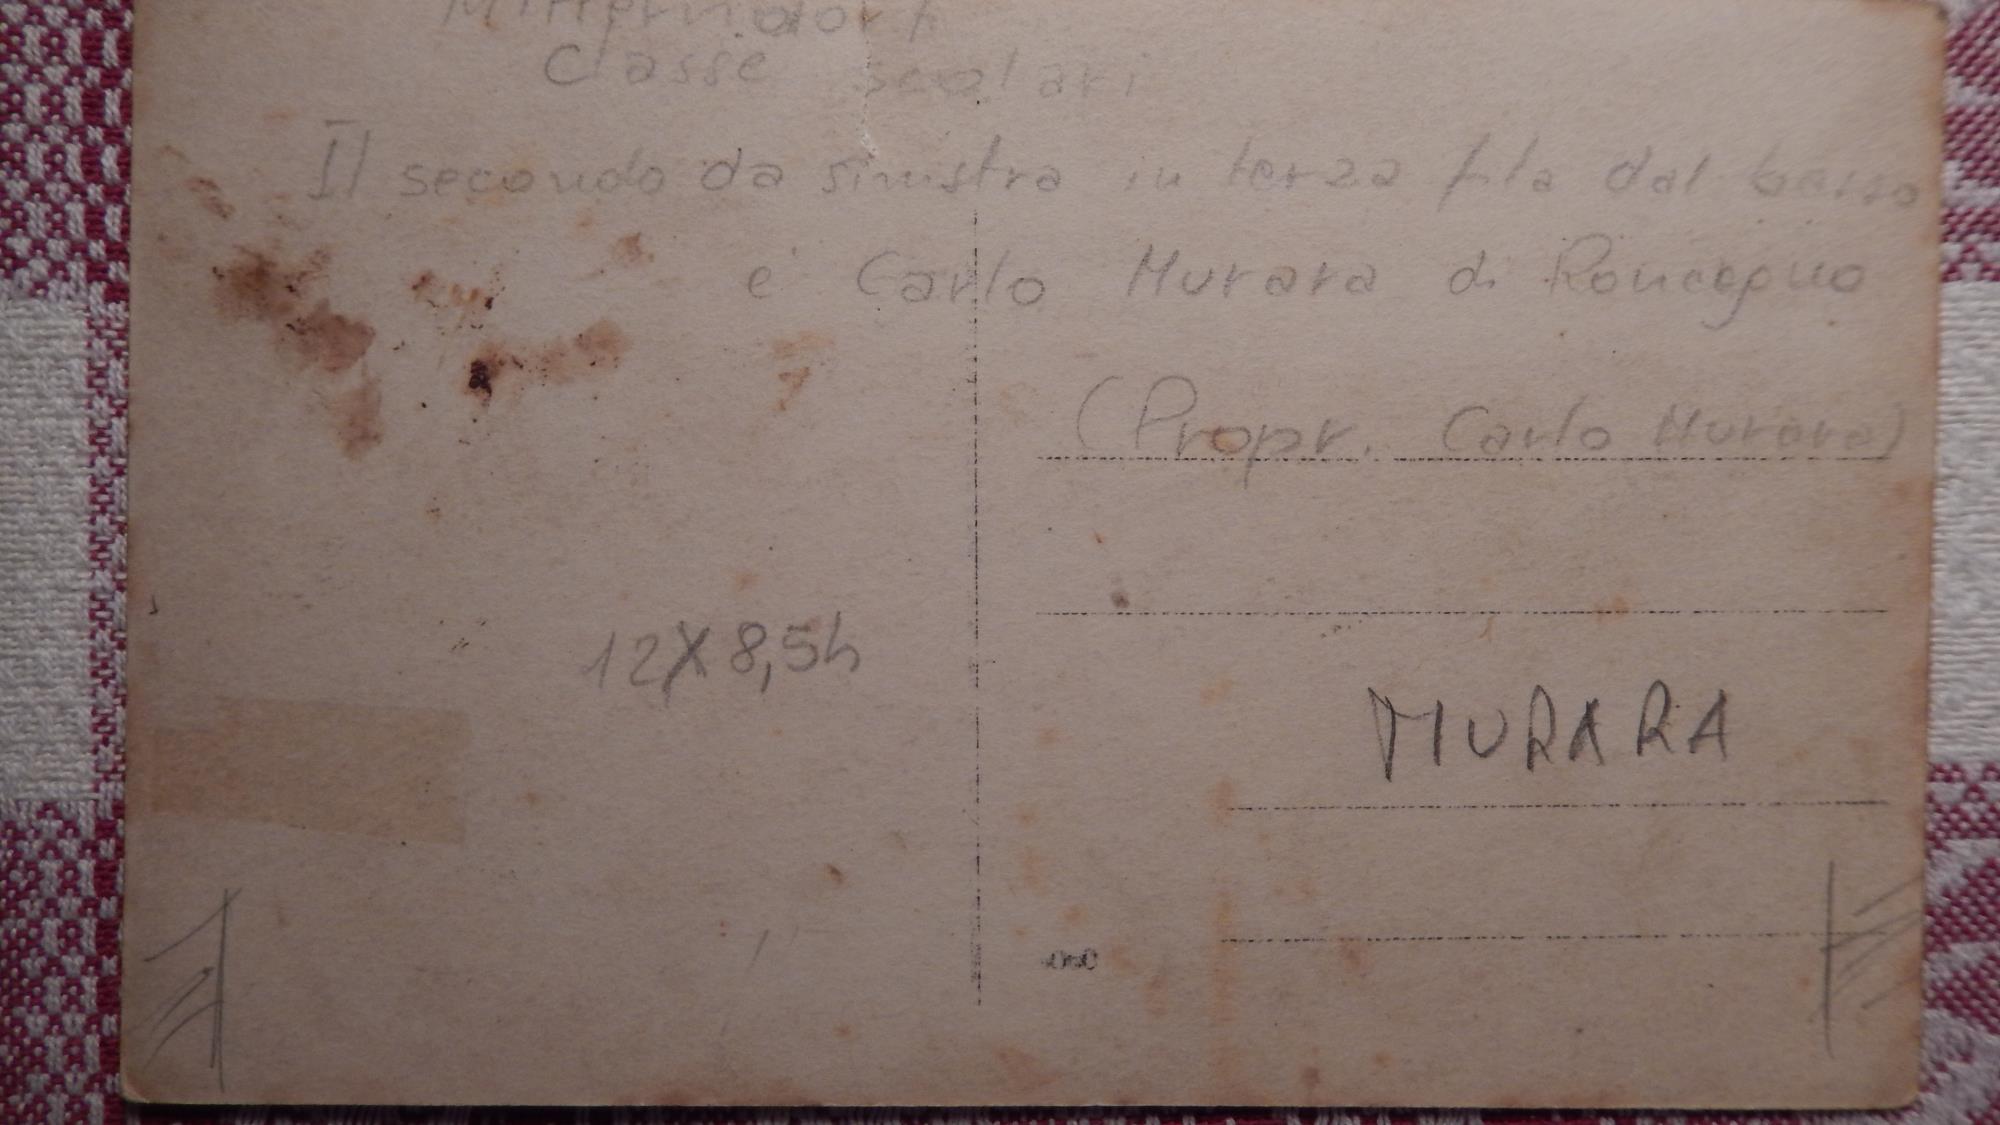 Mitterndorf
Classe scolari
Il secondo da sinistra in terza fila dal basso
e' Carlo Murara di Roncegno
(Propr. Carlo Murara)
12X8,5h
MURARA